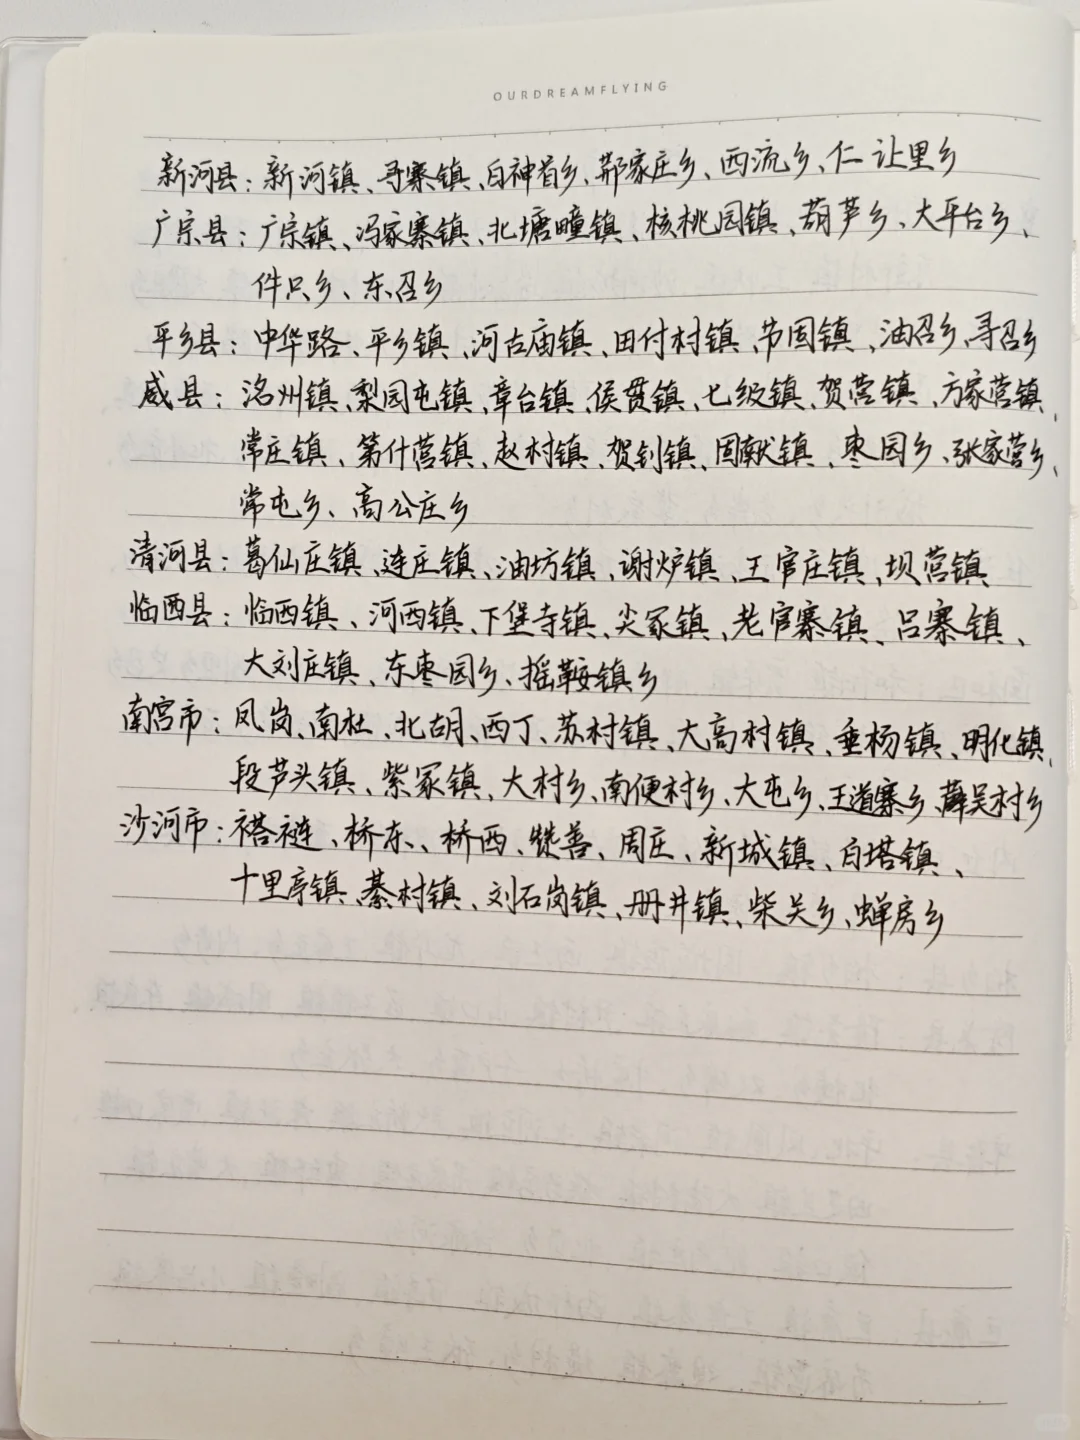 OURDREAMFLYING
新河县：新河镇、寻寨镇、白神首乡、荆家庄乡、西流乡、仁让里乡
广宗县：广宗镇、冯家寨镇、北塘疃镇、核桃园镇、葫芦乡、大平台乡、
件只乡、东召乡
平乡县：中华路、平乡镇、河古庙镇、田付村镇、节固镇、油召乡、寻召乡
威县：洺州镇、梨园屯镇、章台镇、侯贯镇、七级镇、贺营镇、方家营镇、
常庄镇、第什营镇、赵村镇、贺钊镇、固献镇、枣园乡、张家营乡、
常屯乡、高公庄乡
清河县：葛仙庄镇、连庄镇、油坊镇、谢炉镇、王官庄镇、坝营镇
临西县：临西镇、河西镇、下堡寺镇、尖冢镇、老官寨镇、吕寨镇、
大刘庄镇、东枣园乡、摇鞍镇乡
南宫市：凤岗、南杜、北胡、西丁、苏村镇、大高村镇、垂杨镇、明化镇、
段芦头镇、紫冢镇、大村乡、南便村乡、大屯乡、王道寨乡、薛吴村乡
沙河市：褡裢、桥东、桥西、赞善、周庄、新城镇、白塔镇、
十里亭镇、綦村镇、刘石岗镇、册井镇、柴关乡、蝉房乡